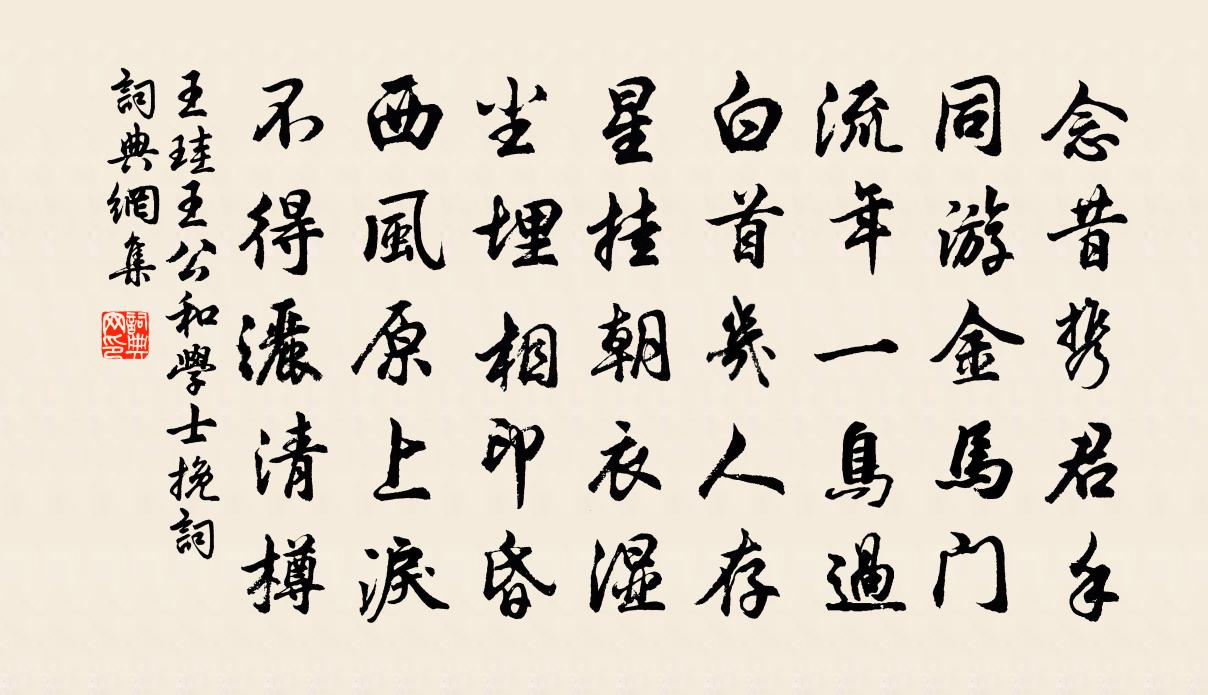 念昔携君手
同游金馬门
流年一鳥過
白首幾人存
星挂朝衣湿
尘埋相印昏
西風原上淚
不得灑清樽
王珪王公和學士挽詞
詞典網集
詞典网印